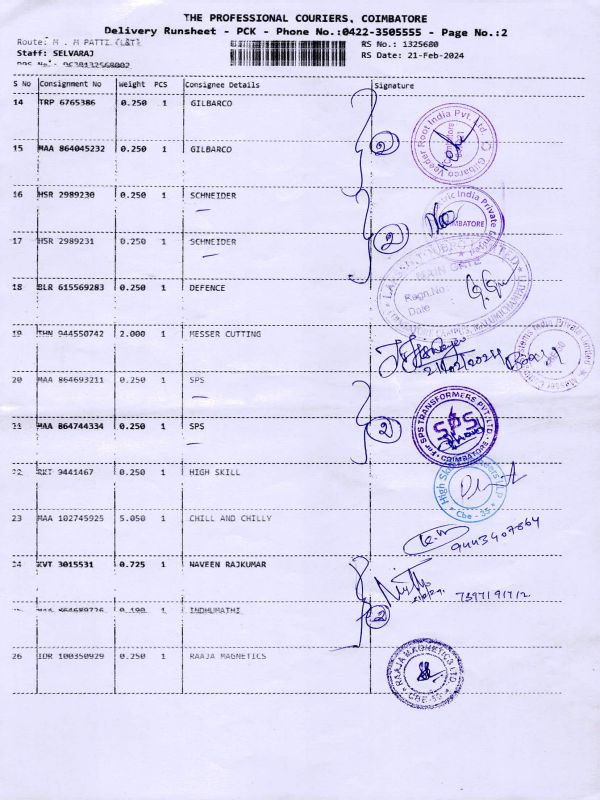 THE PROFESSIONAL COURIERS, COIMBATORE
Delivery Runsheet - PCK - Phone No.:0422-3505555 - Page No.:2
Route: M . M PATTI (L&T)
RS No.: 1325680
Staff: SELVARAJ
RS Date: 21-Feb-2024
S No Consignment No Weight PCS Consignee Details Signature
14 TRP 6765386 0.250 1 GILBARCO
15 MAA 864045232 0.250 1 GILBARCO
Gilbarco Veeder Root India Pvt. Ltd.
2
16 HSR 2989230 0.250 1 SCHNEIDER
17 HSR 2989231 0.250 1 SCHNEIDER
India Private
2
18 BLR 615569283 0.250 1 DEFENCE
MAIN GATE
Regn.No
Date
19 THN 944550742 2.000 1 MESSER CUTTING
21/02/2024
20 MAA 864693211 0.250 1 SPS
21 MAA 864744334 0.250 1 SPS
2
For SPS TRANSFORMERS PVT.LTD.
SPS
COIMBATORE
22 RKT 9441467 0.250 1 HIGH SKILL
High
Cbe - 35
23 MAA 102745925 5.050 1 CHILL AND CHILLY
9443407864
24 KVT 3015531 0.725 1 NAVEEN RAJKUMAR
0.190 1 INDHUMATHI
2
26 IDR 100350929 0.250 1 RAAJA MAGNETICS
RAAJA MAGNETICS LTD.
CBE-35